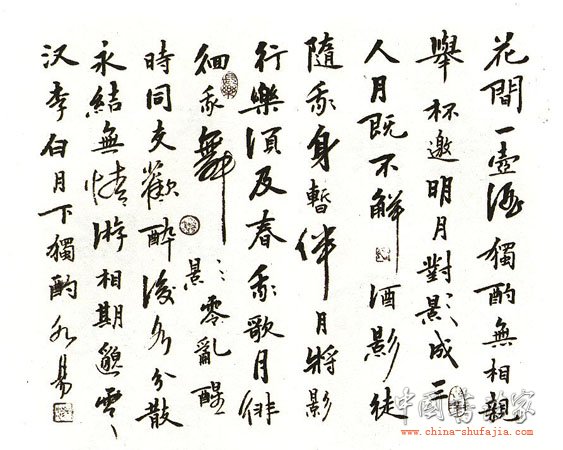 花間一壺酒獨酌無相親
舉杯邀明月對影成三
人月既不解酒影徒
隨我身暫伴月將影
行樂須及春我歌月徘
徊我舞影零亂醒
時同交歡醉後各分散
永結無情游相期邈雲
汉李白月下獨酌
中國書法家
www.china-shufajia.com